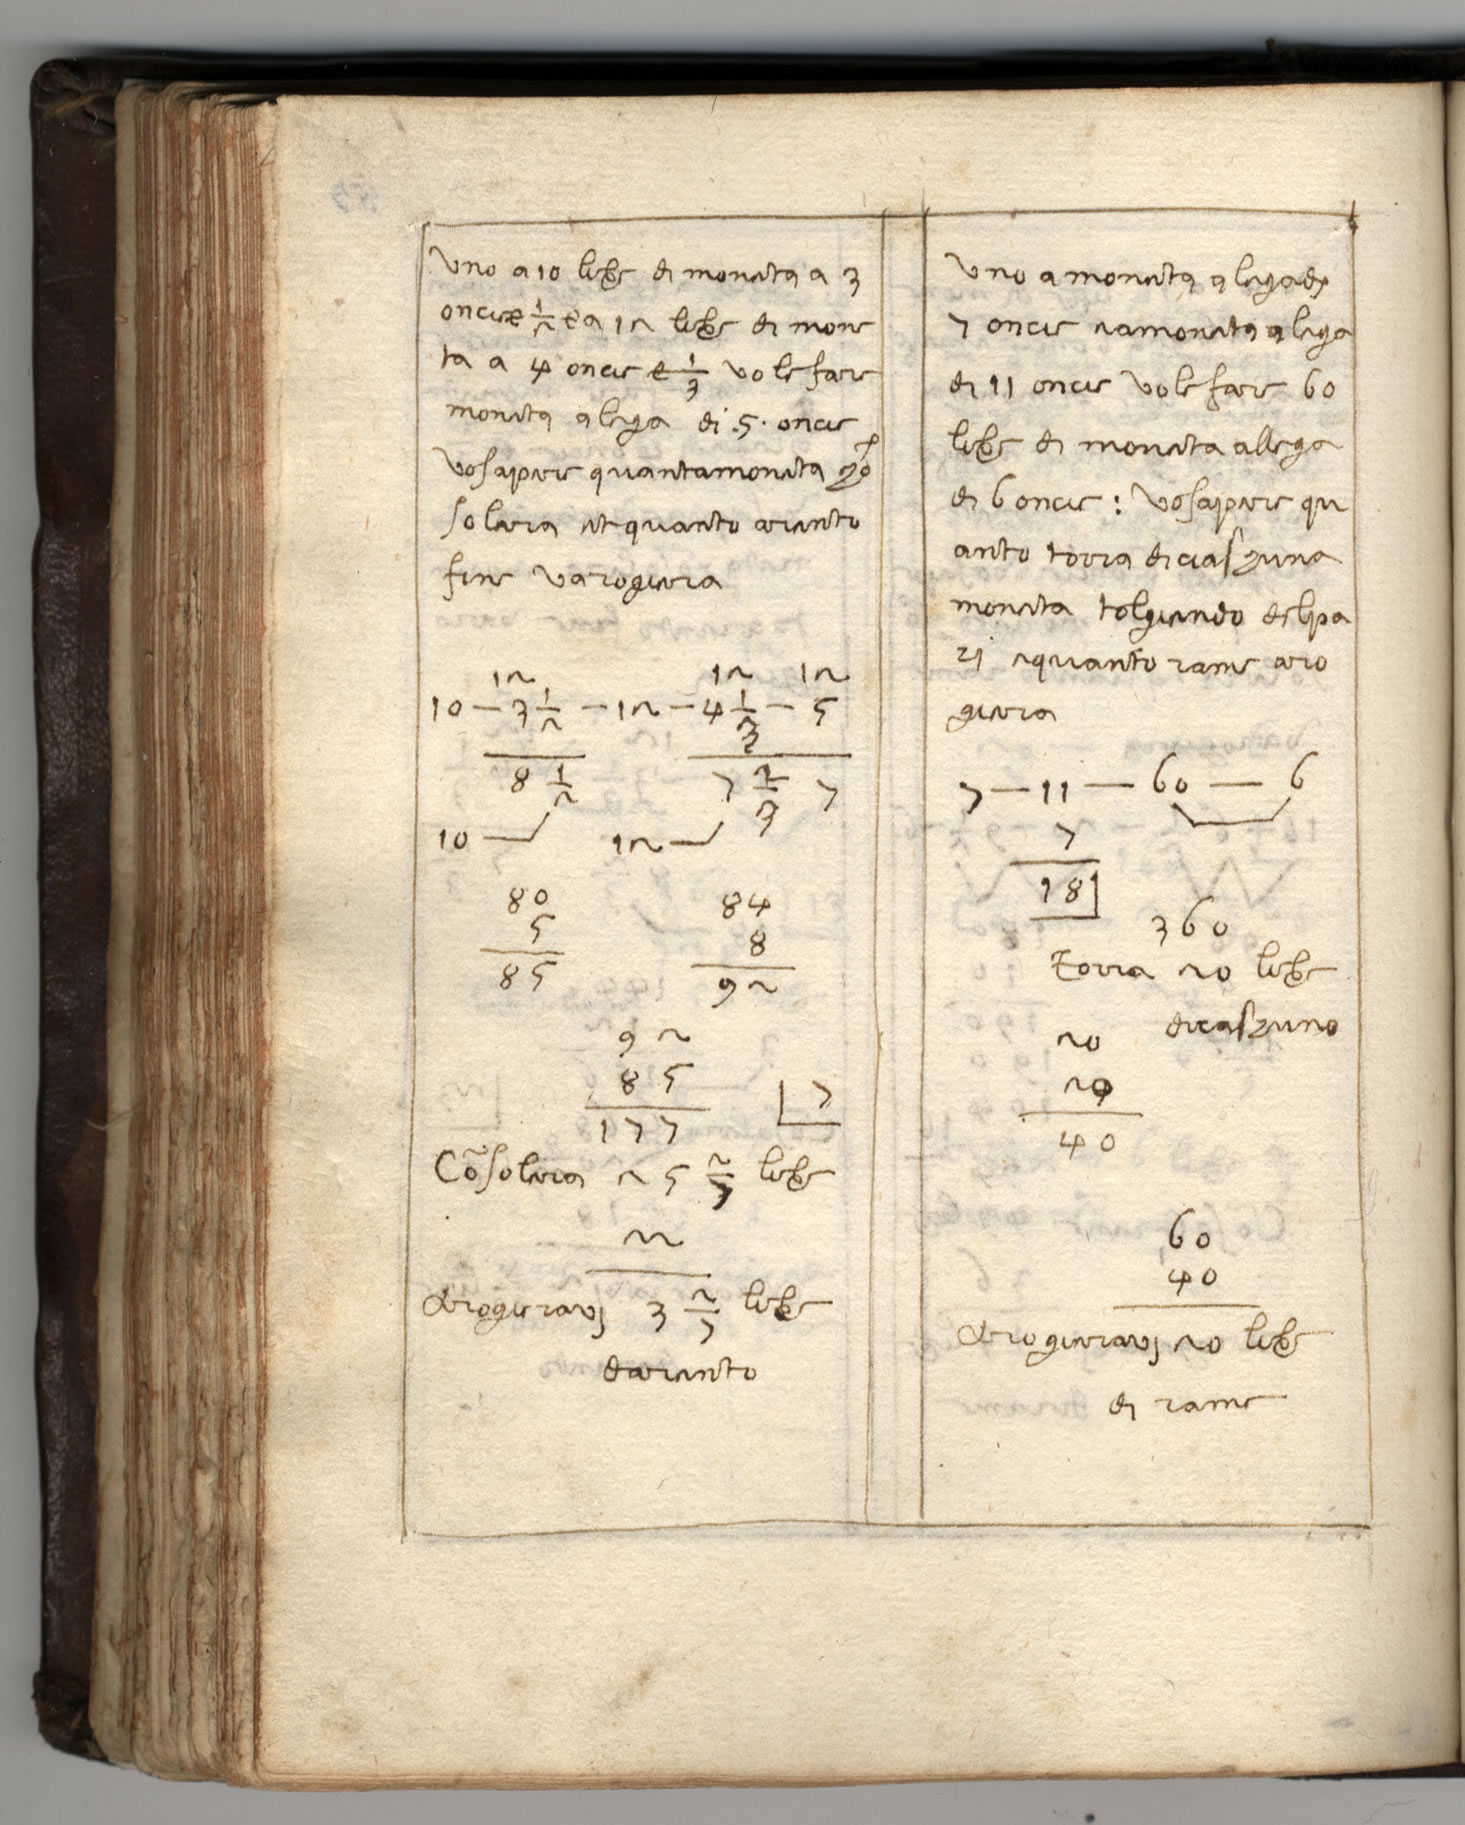 Uno a 10 libre di moneta a 3
oncie e 1/2 e a 12 libre di mone
ta a 4 oncie e 1/3 vole fare
moneta a lega di .5. oncie
vo sapere quanta moneta
solera et quanto arento
fine varogiera
12 12 12
10 — 3 1/2 — 12 — 4 1/3 — 5
8 1/2 7 2/3 7
10 12
80 84
5 8
85 92
92
85
177 7
Cõsolera 25 2/7 libre
22
Arogieravj 3 2/7 libre
darento
Uno a moneta a lega di
7 oncie e a moneta a lega
di 11 oncie vole fare 60
libre di moneta allega
di 6 oncie : vo sapere qu
anto torra di ciaschuna
moneta tolgiendo del pa
ri e quanto rame aro
giera
7 — 11 — 60 — 6
7
18
360
Torra 20 libre
di ciaschuno
20
20
40
60
40
Arogieravj 20 libre
di rame